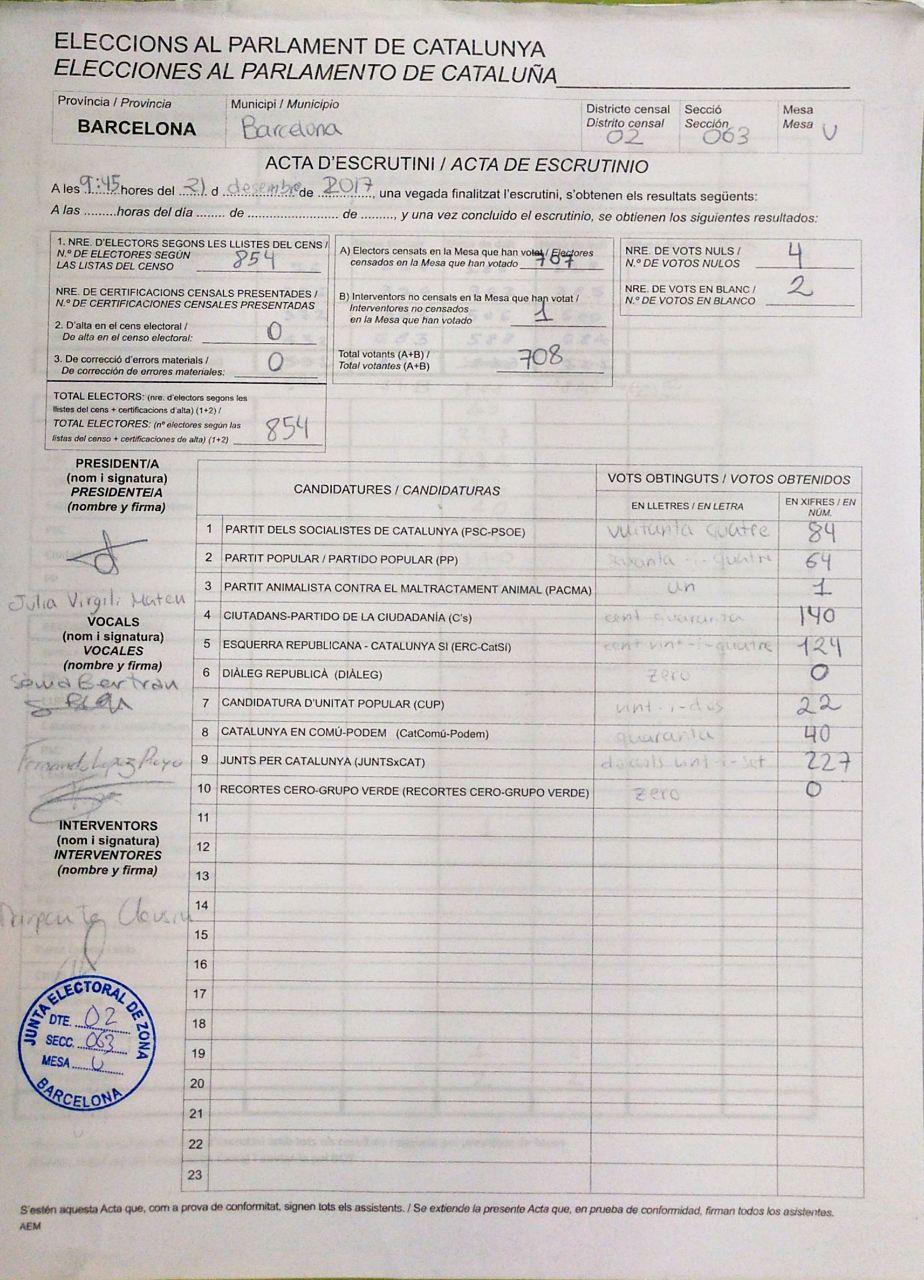 ELECCIONS AL PARLAMENT DE CATALUNYA
ELECCIONES AL PARLAMENTO DE CATALUÑA
Província / Provincia
BARCELONA
Municipi / Municipio
Barcelona
Districte censal
Distrito censal
02
Secció
Sección
063
Mesa
Mesa U
ACTA D'ESCRUTINI / ACTA DE ESCRUTINIO
A les 9:45 hores del 21 d desembre de 2017, una vegada finalitzat l'escrutini, s'obtenen els resultats següents:
A las .........horas del día ........ de ........................ de ........., y una vez concluido el escrutinio, se obtienen los siguientes resultados:
1. NRE. D'ELECTORS SEGONS LES LLISTES DEL CENS /
N.º DE ELECTORES SEGÚN
LAS LISTAS DEL CENSO 854
NRE. DE CERTIFICACIONS CENSALS PRESENTADES /
N.º DE CERTIFICACIONES CENSALES PRESENTADAS
2. D'alta en el cens electoral /
De alta en el censo electoral: 0
3. De correcció d'errors materials /
De corrección de errores materiales: 0
TOTAL ELECTORS: (nre. d'electors segons les
llistes del cens + certificacions d'alta) (1+2) /
TOTAL ELECTORES: (nº electores según las
listas del censo + certificaciones de alta) (1+2) 854
A) Electors censats en la Mesa que han votat / Electores
censados en la Mesa que han votado 707
B) Interventors no censats en la Mesa que han votat /
Interventores no censados
en la Mesa que han votado 1
Total votants (A+B) /
Total votantes (A+B) 708
NRE. DE VOTS NULS /
N.º DE VOTOS NULOS 4
NRE. DE VOTS EN BLANC /
N.º DE VOTOS EN BLANCO 2
PRESIDENT/A
(nom i signatura)
PRESIDENTE/A
(nombre y firma)
Julia Virgili Mateu
VOCALS
(nom i signatura)
VOCALES
(nombre y firma)
Sònia Bertran
Fernando Lopez
INTERVENTORS
(nom i signatura)
INTERVENTORES
(nombre y firma)
CANDIDATURES / CANDIDATURAS
VOTS OBTINGUTS / VOTOS OBTENIDOS
EN LLETRES / EN LETRA
EN XIFRES / EN NÚM.
1 PARTIT DELS SOCIALISTES DE CATALUNYA (PSC-PSOE) vuitanta quatre 84
2 PARTIT POPULAR / PARTIDO POPULAR (PP) xixanta-i-quatre 64
3 PARTIT ANIMALISTA CONTRA EL MALTRACTAMENT ANIMAL (PACMA) un 1
4 CIUTADANS-PARTIDO DE LA CIUDADANÍA (C's) cent quaranta 140
5 ESQUERRA REPUBLICANA - CATALUNYA SI (ERC-CatSí) cent vint-i-quatre 124
6 DIÀLEG REPUBLICÀ (DIÀLEG) zero 0
7 CANDIDATURA D'UNITAT POPULAR (CUP) vint-i-dos 22
8 CATALUNYA EN COMÚ-PODEM (CatComú-Podem) quaranta 40
9 JUNTS PER CATALUNYA (JUNTSxCAT) doscents vint-i-set 227
10 RECORTES CERO-GRUPO VERDE (RECORTES CERO-GRUPO VERDE) zero 0
11
12
13
14
15
16
17
18
19
20
21
22
23
JUNTA ELECTORAL DE ZONA
DTE. 02
SECC. 063
MESA U
BARCELONA
S'estén aquesta Acta que, com a prova de conformitat, signen tots els assistents. / Se extiende la presente Acta que, en prueba de conformidad, firman todos los asistentes.
AEM